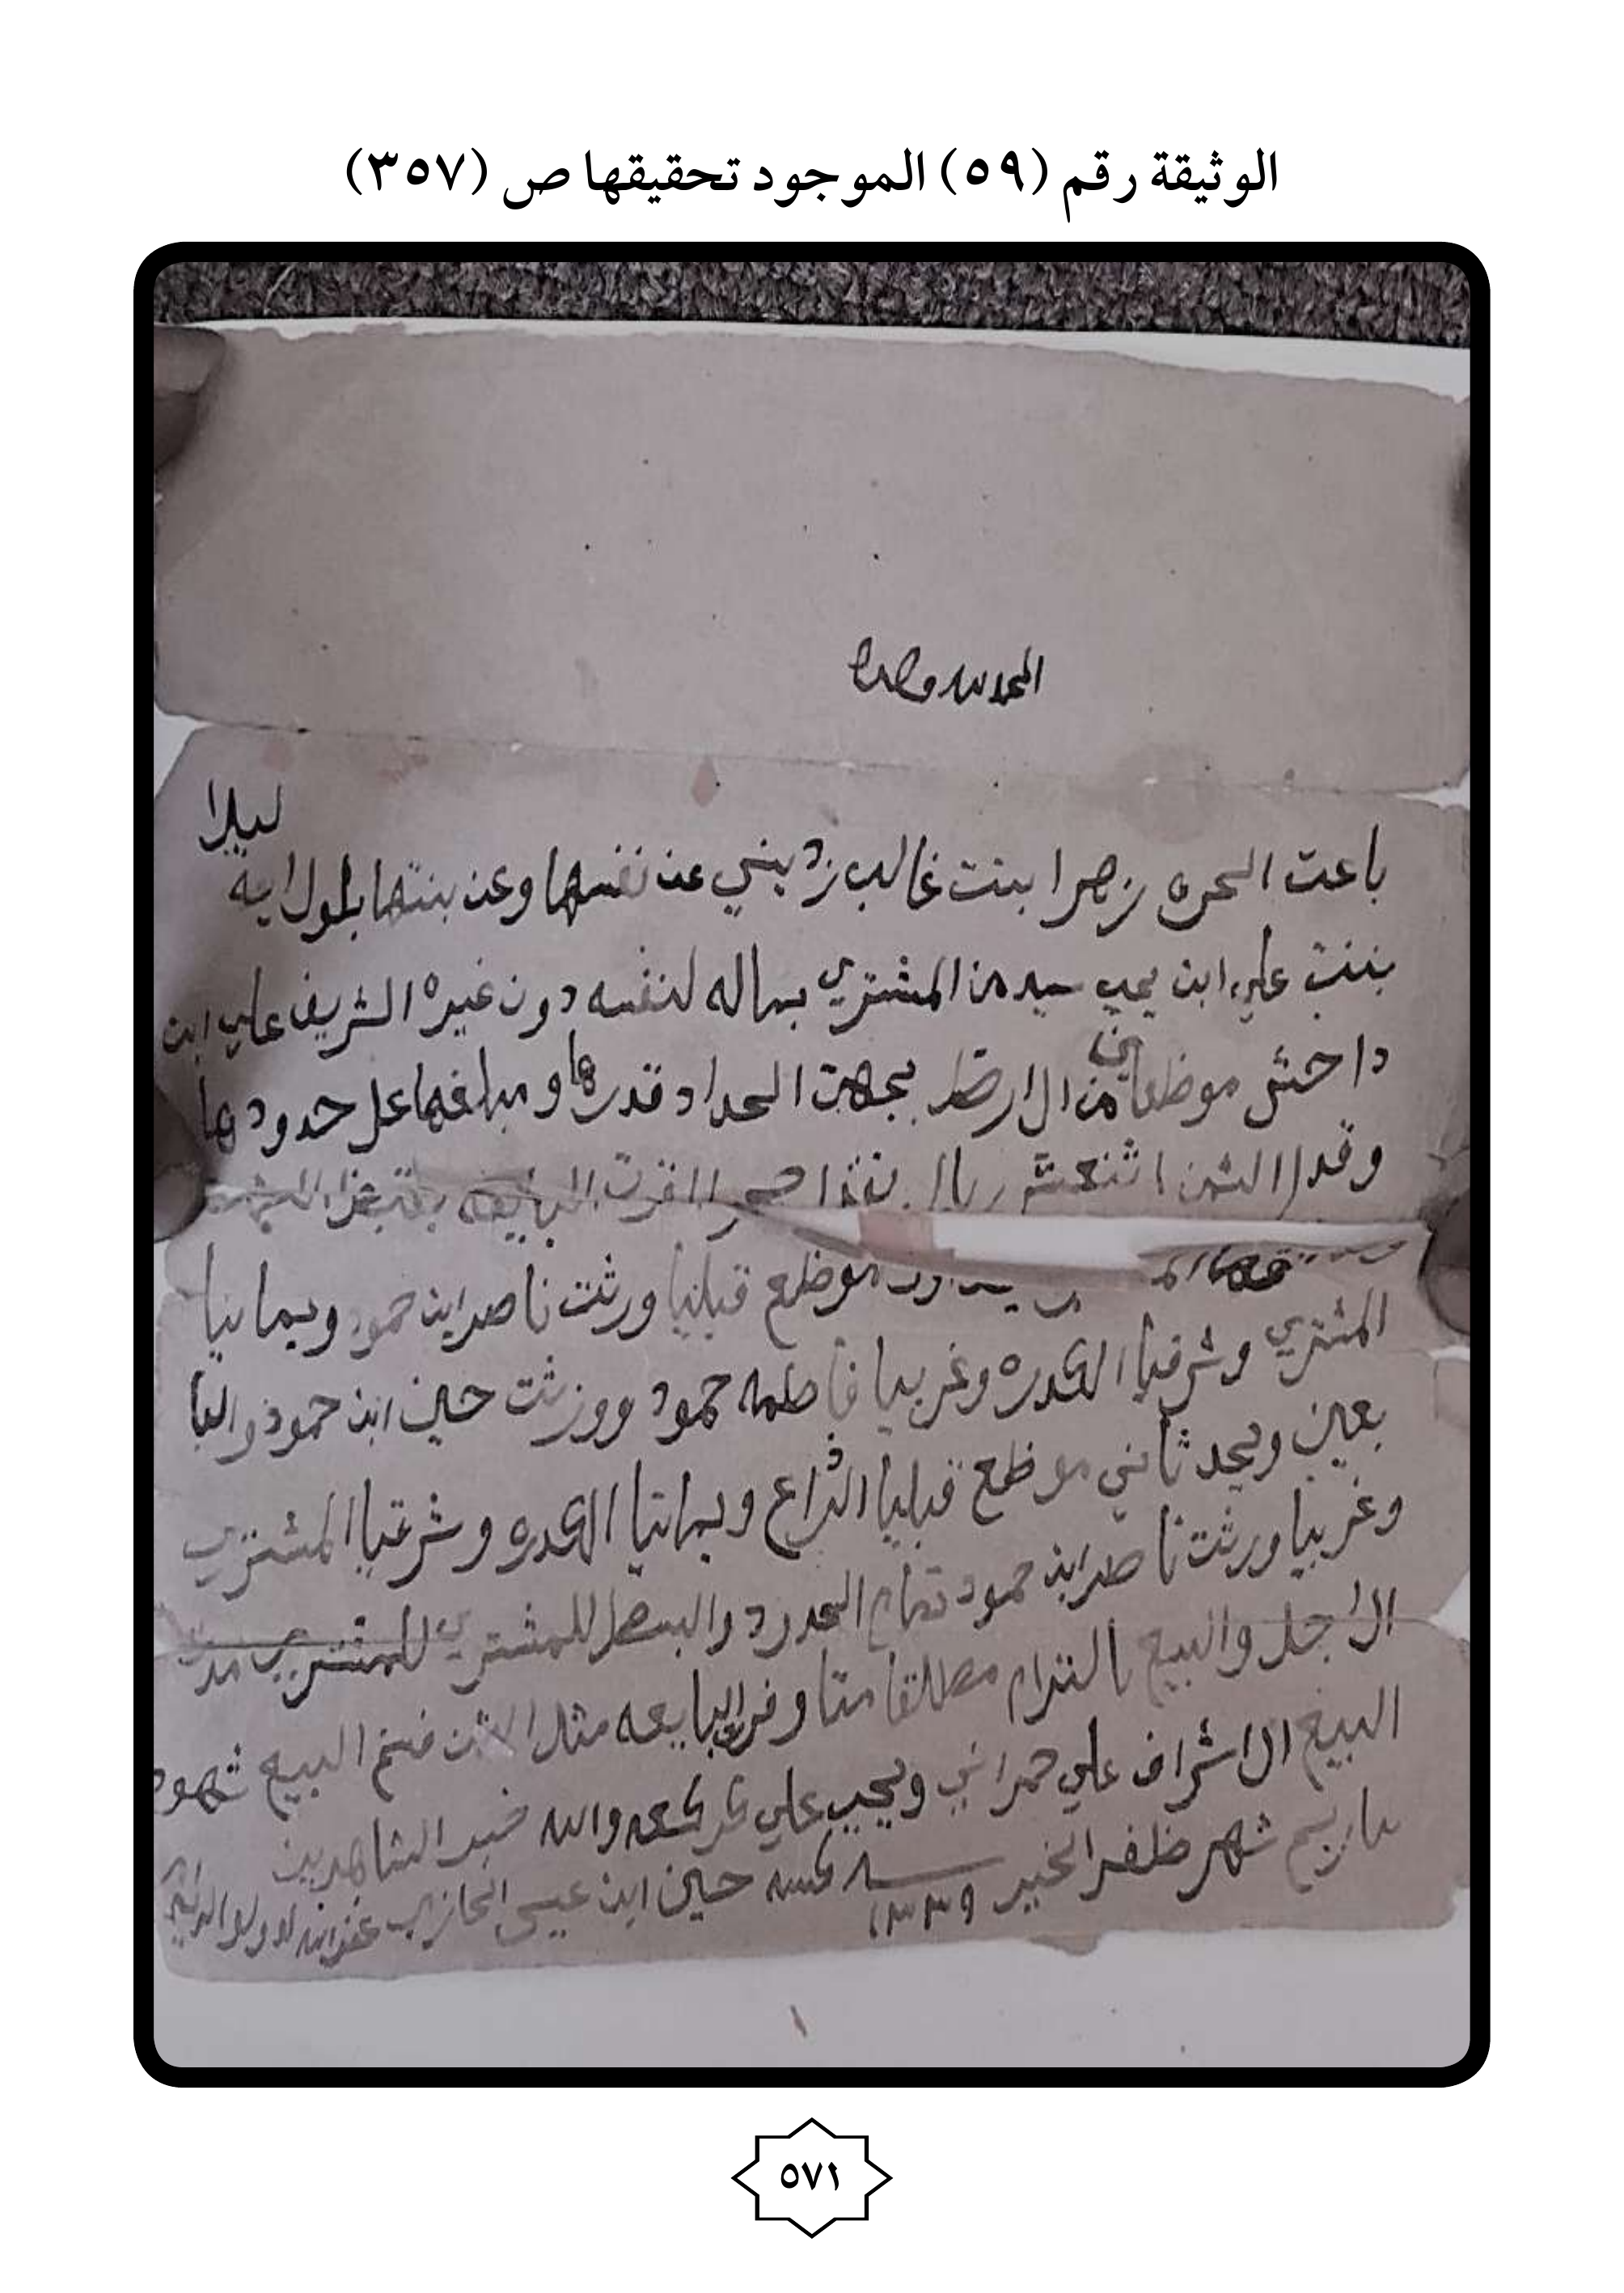 الوثيقة رقم (٥٩) الموجود تحقيقها ص (٣٥٧)
الحمد لله وحده
ليلا
باعت الحره زهرا بنت غالب رديني عن نفسها وعن بنتها بلولايه
بننت علي ابن يحيى سيد من المشتري بماله لنفسه دون غيره الشريف علي ابن
داحش موظعاين من الارض بجهت الحداد قدرها ومبلغها عل حدودها
وقدر الثمن اثنعشر ريال نقدا اقرت البايعه بقبض الثمن
موظع قبليا ورثت ناصر ابن حمود ويمانيا
المشتري وشرقيا الكدره وغربيا فاطمه حمود وورثت حسين ابن حمود والبا
بعين ويحد ثاني موظع قبليا الذراع ويمانيا الكدره وشرقيا المشتري
وغربيا ورثت ناصر ابن حمود تمام الحدود والبسط للمشتري للمشتري
الاجل والبيع بالتزام مطلقا متا البايعه مثل الثمن فتم البيع شهود
البيع الاشراف علي حمراني ويحيى علي والله خير الشاهدين
بتاريخ شهر ظفر الخير سنه ١٣٣٩ كتبه حسين ابن عيسى الحازمي غفر الله له ولوالديه
٥٧١